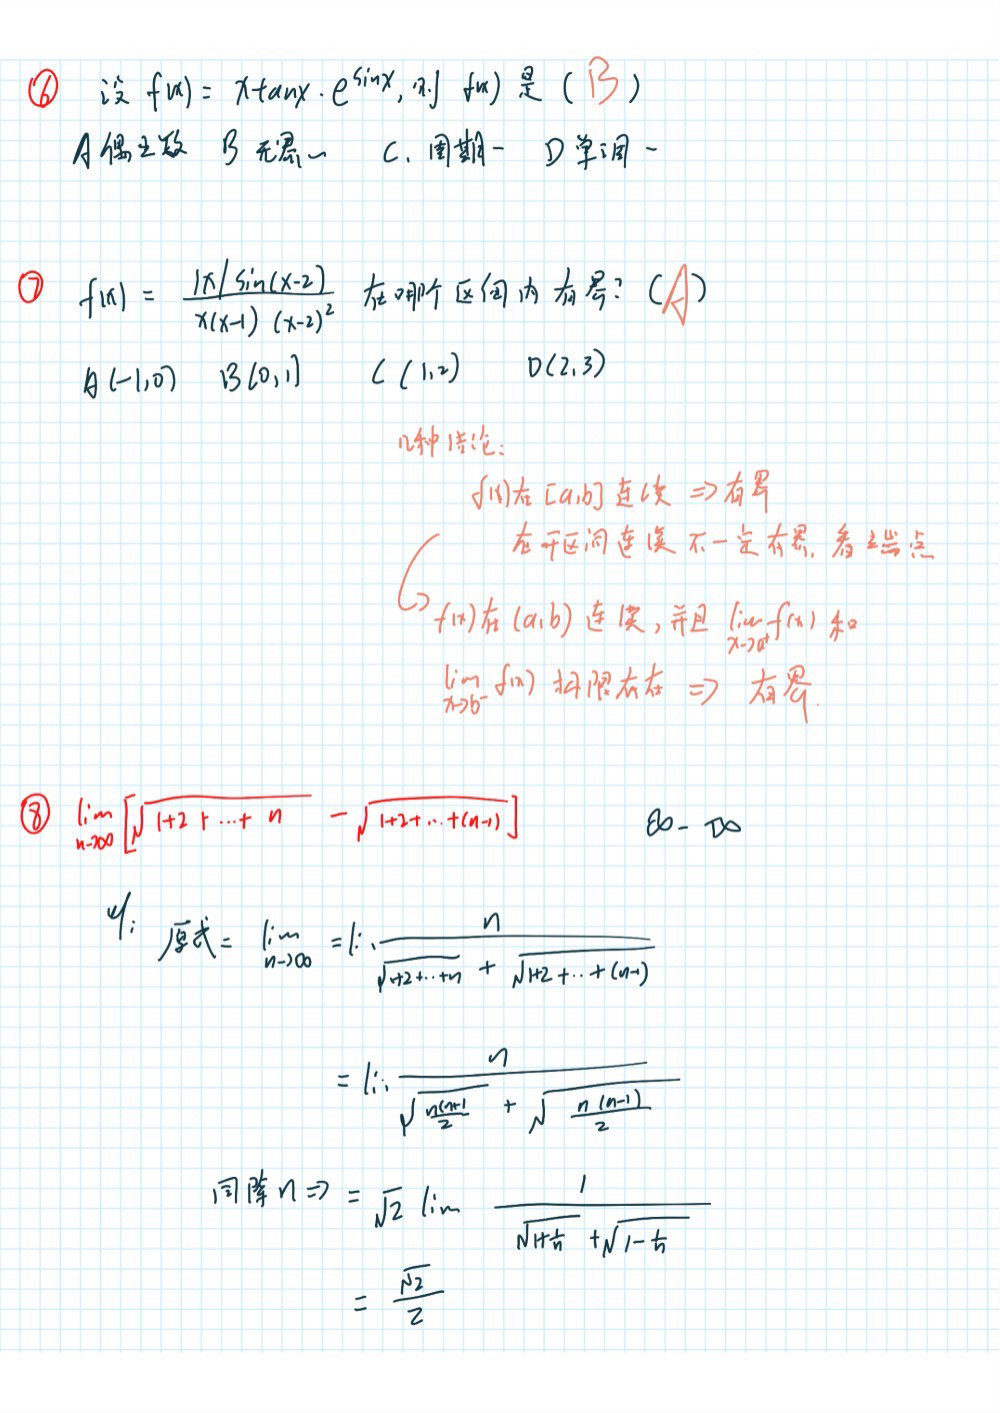 ⑥ 设 f(x) = xtanx·e^{sinx}, 则 f(x) 是 ( B )
A 偶函数 B 无界~ C. 周期~ D 单调~
⑦ f(x) = \frac{|x| sin(x-2)}{x(x-1)(x-2)^2} 在哪个区间内有界? (A)
A (-1,0) B (0,1) C (1,2) D (2,3)
几种结论:
f(x)在 [a,b] 连续 => 有界
在开区间连续不一定有界, 看端点
f(x)在 (a,b) 连续, 并且 \lim_{x→a^+} f(x) 和
\lim_{x→b^-} f(x) 极限存在 => 有界.
⑧ \lim_{n→∞} [\sqrt{1+2+…+n} - \sqrt{1+2+…+(n-1)}] ∞-∞
原式 = \lim_{n→∞} = li. \frac{n}{\sqrt{1+2+…+n} + \sqrt{1+2+…+(n-1)}}
= li. \frac{n}{\sqrt{\frac{n(n+1)}{2}} + \sqrt{\frac{n(n-1)}{2}}}
同除n => = √2 lim \frac{1}{\sqrt{1+\frac{1}{n}} + \sqrt{1-\frac{1}{n}}}
= \frac{√2}{2}